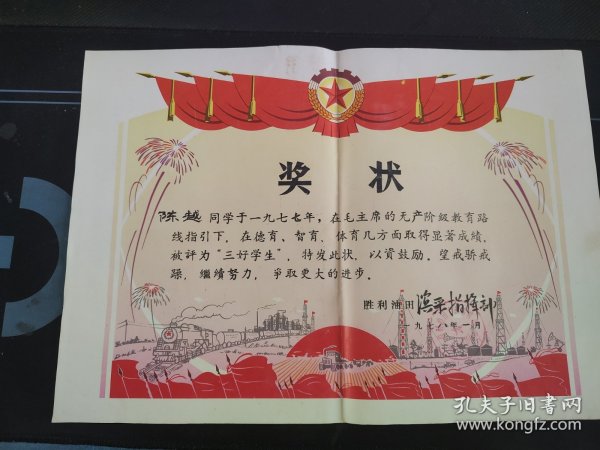 奖状
陈越同学于一九七七年，在毛主席的无产阶级教育路
线指引下，在德育、智育、体育几方面取得显著成绩，
被评为“三好学生”，特发此状，以资鼓励。望戒骄戒
躁，继续努力，争取更大的进步。
胜利油田滨采指挥部
一九七八年一月
孔夫子旧书网
www.kongfz.com